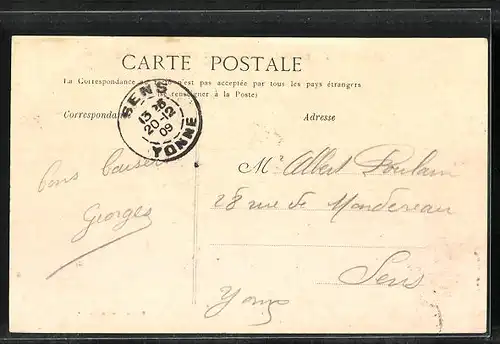 CARTE POSTALE
La Correspondance au n'est pas acceptée par tous les pays étrangers
renseigner à la Poste)
Correspondance
Adresse
SENS
13 -
20-12
09
YONNE
Bons baisers
Georges
Mr Albert Poulain
28 rue de Mondereau
Sens
Yonne